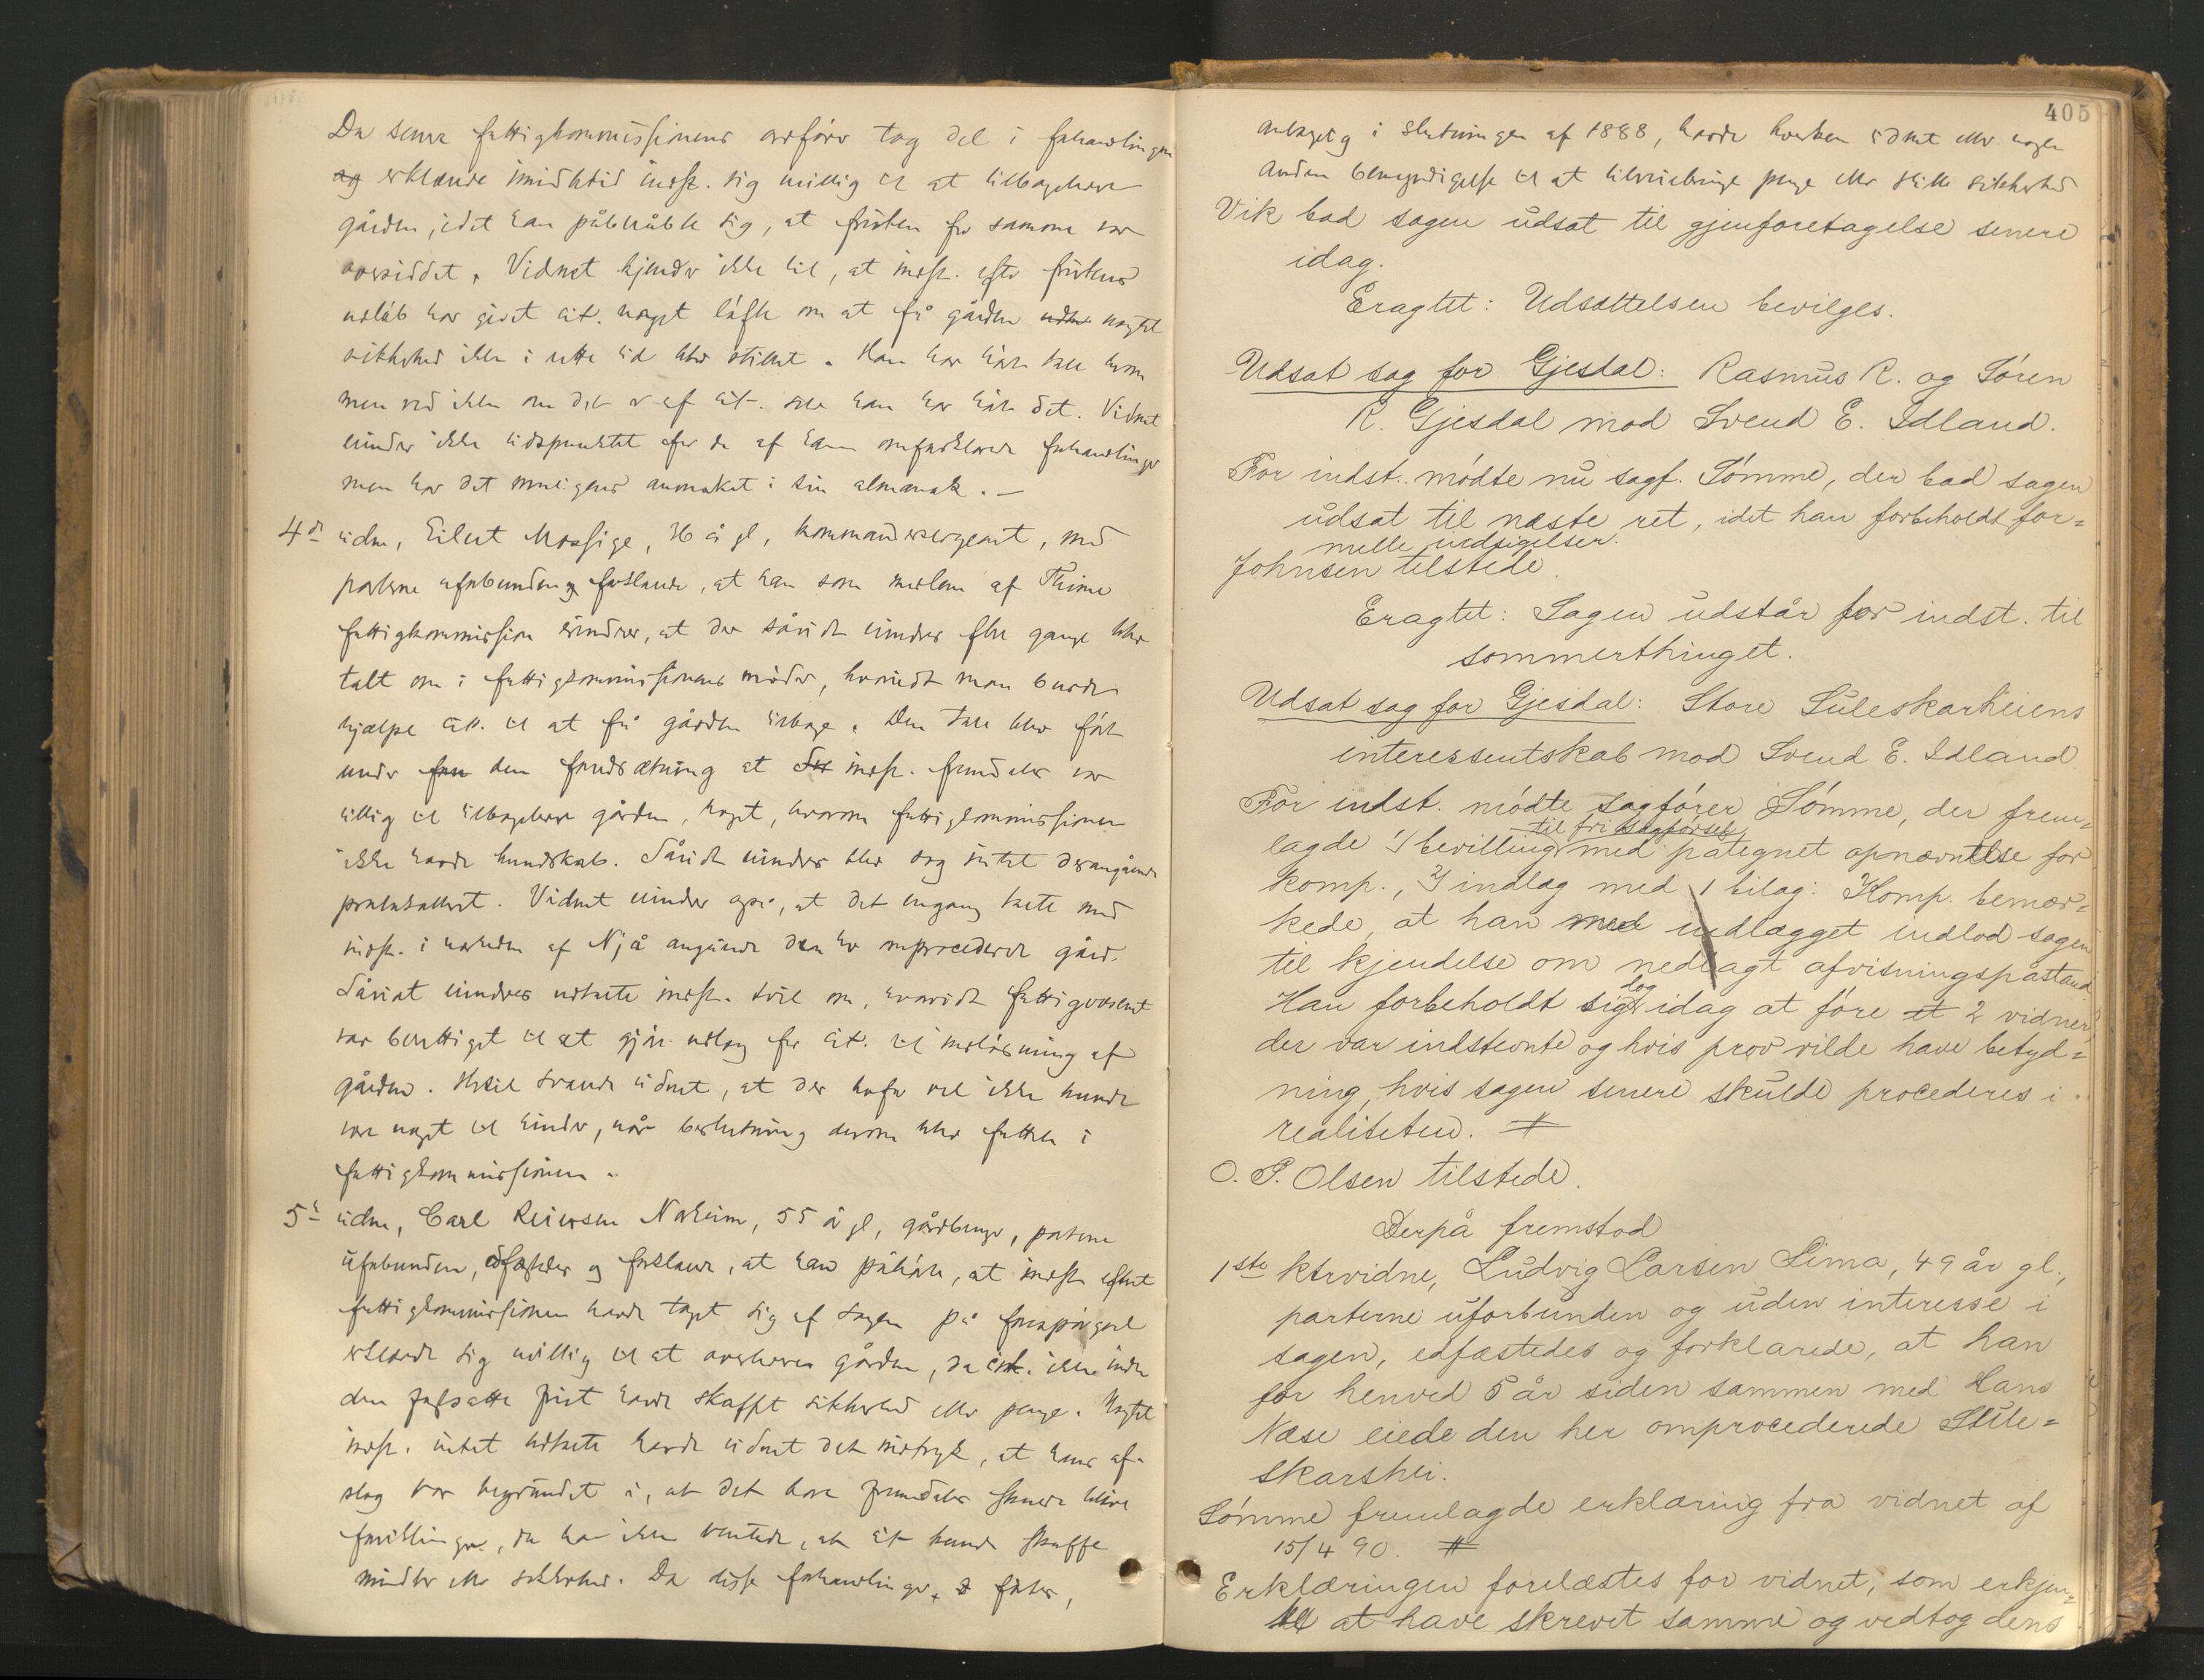 Da senere fattigkommissionens ordfører tog del i forhandlingen
og erklærede imidlertid indst. sig uvillig til at tilbagelevere
gården, idet han påberåbte sig, at fristen for samme var
oversiddet. Vidnet kjender ikke til, at indst. efter fristens
udløb har givet cit. noget løfte om at få gården uden uagtet
sikkerhed ikke i rette tid blev stillet. Han har hørt tale herom
men ved ikke om det er af cit. selv han har hørt det. Vidnet
erindrer ikke tidspunktet for de af ham omforklarede forhandlinger
men har det muligens anmærket i sin almanak. —
4de vidne, Eilert Mossige, 36 å gl, kommandersergeant, med
parterne uforbunden forklarede, at han som medlem af Thime
fattigkommission erindrer, at der såvidt erindres flere gange blev
talt om i fattigkommissionens møder, hvorvidt man burde
hjælpe cit. til at få gården tilbage. Den tale blev ført
under for den forudsætning at det indst. fremdeles var
villig til at tilbagelevere gården, noget, hvorom fattigkommissionen
ikke havde kundskab. Såvidt erindres blev dog intet derangående
protokolleret. Vidnet erindrer også, at det engang talte med
indst. i nærheden af Njå angående den her omprocederede gård.
Såvidt erindres udtalte indst. tvil om, hvorvidt fattigvæsenet
var berettiget til at gjøre udlæg for cit. til indløsning af
gården. Hertil svarede vidnet, at der herfor vel ikke kunde
være noget til hinder, når beslutning derom blev fattet i
fattigkommissionen.
5te vidne, Carl Reiersen Nærheim, 55 å gl, gårdbruger, parterne
uforbunden, edfæstedes og forklarede, at han påhørte, at indst. efterat
fattigkommissionen havde taget sig af sagen på forespørgsel
erklærede sig uvillig til at overlevere gården, da cit. ikke inden
den fastsatte frist havde skaffet sikkerhed eller penge. Uagtet
indst. intet udtalte havde vidnet det indtryk, at hans af-
slag var begrundet i, at det bare fremdeles skulde blive
forviklinger, da han ikke ventede, at cit. kunde skaffe
midler eller sikkerhed. Da disse forhandlinger førtes,
405
antagelig i slutningen af 1888, havde hverken vidnet eller nogen
anden bemyndigelse til at tilveiebringe penge eller stille sikkerhed
Vik bad sagen udsat til gjenforetagelse senere
idag.
Eragtet: Udsættelsen bevilges.
Udsat sag for Gjesdal: Rasmus R. og Søren
R. Gjesdal mod Svend E. Idland.
For indst. mødte nu sagf. Sømme, der bad sagen
udsat til næste ret, idet han forbeholdt for=
melle indsigelser.
Johnsen tilstede.
Eragtet: Sagen udstår for indst. til
sommerthinget.
Udsat sag for Gjesdal: Store Suleskarheiens
interessentskab mod Svend E. Idland
For indst. mødte sagfører Sømme, der frem=
til fri sagførsel
lagde 1/ bevilling med påtegnet opnævnelse for
komp., 2/ indlæg med 1 bilag: Komp. bemær=
kede, at han med indlægget indlod sagen
til kjendelse om nedlagt afvisningspåstand.
dog
Han forbeholdt sig idag at føre et 2 vidner,
der var indstevnte og hvis prov vilde have betyd=
ning, hvis sagen senere skulde procederes i
realiteten. #
O. P. Olsen tilstede.
Derpå fremstod
1ste ktrvidne, Ludvig Larsen Lima, 49 år gl.,
parterne uforbunden og uden interesse i
sagen, edfæstedes og forklarede, at han
for henved 5 år siden sammen med Hans
Næse eiede den her omprocederede Sule=
skarshei.
Sømme fremlagde erklæring fra vidnet af
15/4 90. #
Erklæringen forelæstes for vidnet, som erkjen=
te at have skrevet samme og vedtog dens